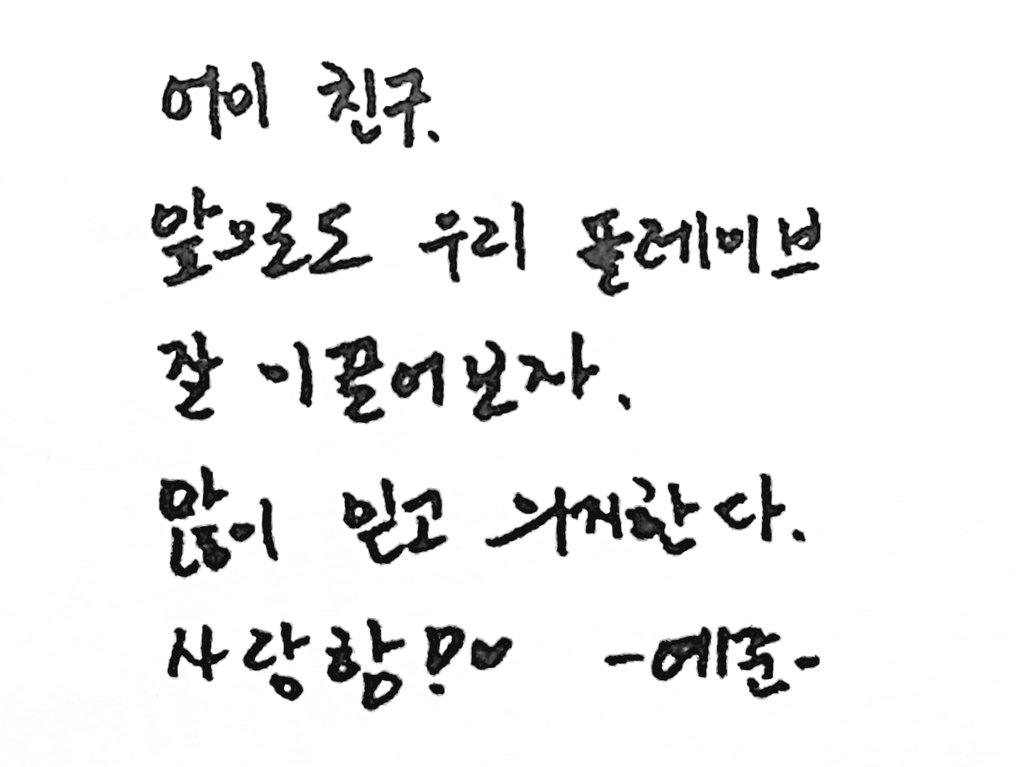 어이 친구.
앞으로도 우리 플레이브
잘 이끌어보자.
많이 믿고 의지한다.
사랑함!♥ -예준-